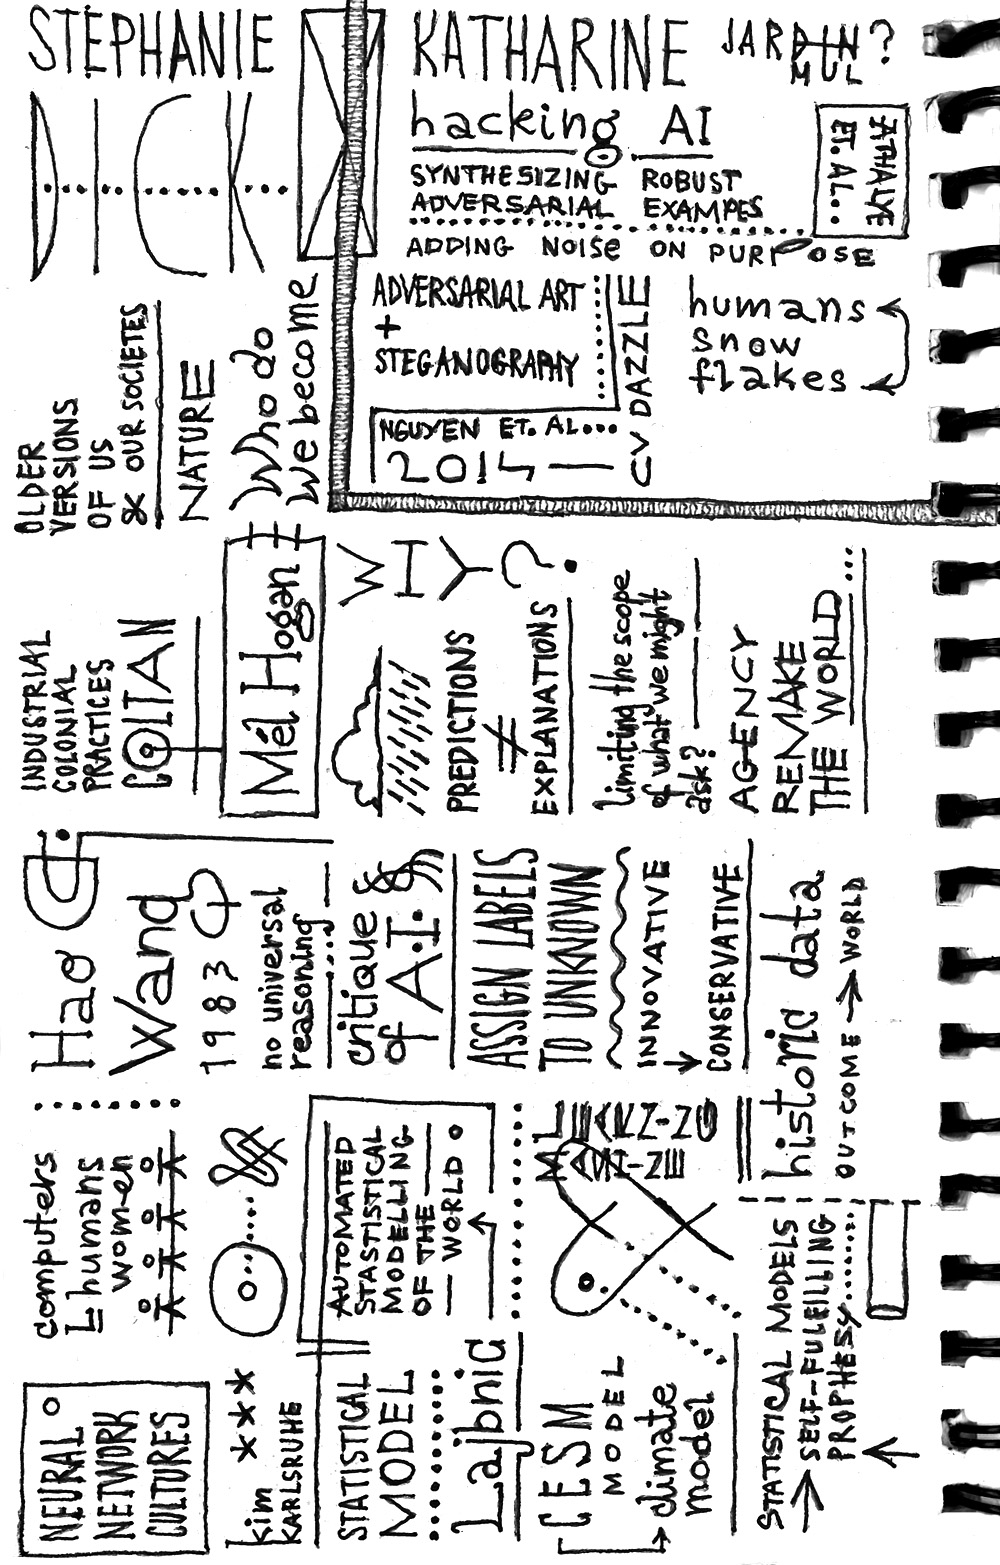 NEURAL
NETWORK
CULTURES
kim ***
KARLSRUHE
STATISTICAL
MODEL
Laibnid
CESM
MODEL
climate
model
STATISTICAL MODELS
SELF-FULFILLING
PROPHESY........
computers
humans
wom-en
AUTOMATED
STASTISTICAL
MODELLING
OF THE
WORLD
historic data
OUTCOME → WORLD
Hao
Wand
1983
no universal
reasoning
critique &
of A.I.
ASSIGN LABELS
TO UNKNOWN
INNOVATIVE
CONSERVATIVE
INDUSTRIAL
COLONIAL
PRACTICES
COLTAN
Mél Hogan
WHY?
PREDICTIONS
≠
EXPLANATIONS
Limiting the scope
of what we might
ask?
AGENCY
REMAKE
THE WORLD...
OLDER
VERSIONS
OF US
& OUR SOCIETES
NATURE
Who do
we become
STEPHANIE
DICK
KATHARINE JARDIN?
MUL
hacking AI
SYNTHESIZING ROBUST
ADVERSARIAL EXAMPES
ATHALYE
ET. AL..
ADDING NOISE ON PURPOSE
ADVERSARIAL ART
+
STEGANOGRAPHY
NGUYEN ET. AL...
2014
CV DAZZLE
humans
snow
flakes